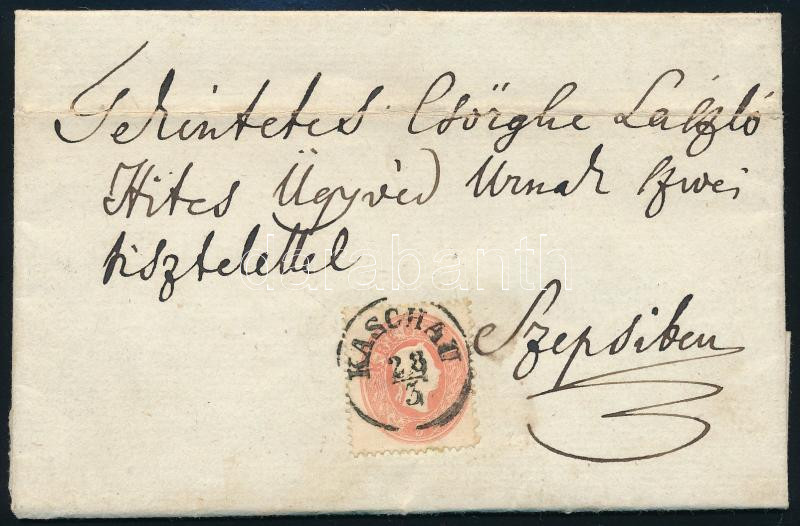 Tekintetes Csörghe László
Hites Ügyvéd Urnak szívei
tisztelettel
darabanth
KASCHAU
28
3
Szepsiben